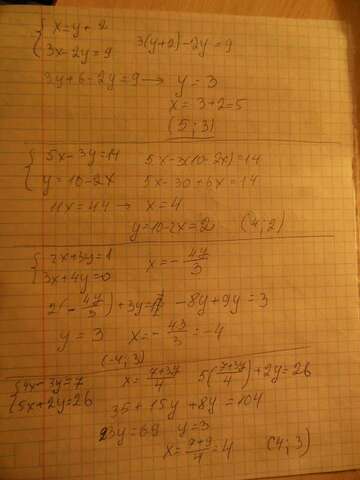 { x=y+2
3x-2y=9   3(y+2)-2y=9
3y+6-2y=9 → y=3
x=3+2=5
(5;3)
{ 5x-3y=14   5x-3(10-2x)=14
y=10-2x   5x-30+6x=14
11x=44 → x=4
y=10-2x=2   (4;2)
{ 2x+3y=1   x=-4y/3
3x+4y=0
2(-4y/3)+3y=1   -8y+9y=3
y=3   x=-4·3/3=-4
(-4;3)
{ 4x-3y=7   x=7+3y/4   5(7+3y/4)+2y=26
5x+2y=26   35+15y+8y=104
23y=69   y=3
x=7+9/4=4   (4;3)